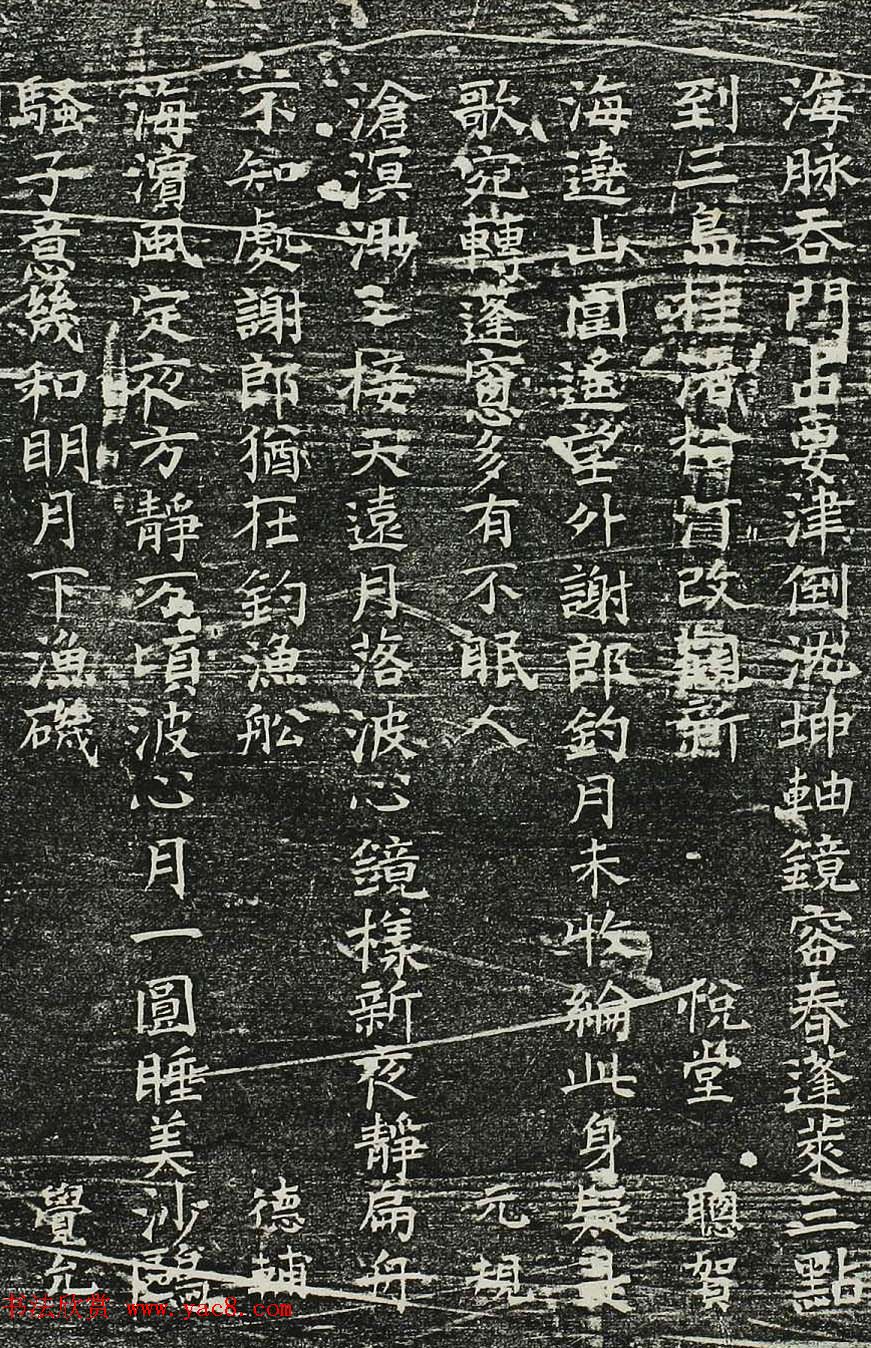 海脉吞門占要津倒沈坤軸鏡奩春蓬萊三點
到三島桂渚 汀改觀新 悅堂 聰賀
海遶山圍遙望外謝郎釣月未收綸此身疑是
歌宛轉蓬窻多有不眠人 元規
滄溟渺〻接天遠月落波心鏡樣新夜靜扁舟
不知處謝郎猶在釣漁舩 德輔
海濱風定夜方靜万頃波心月一圓睡美沙鷗
騷子意幾和明月下漁磯 覺允
书法欣赏 www.yac8.com